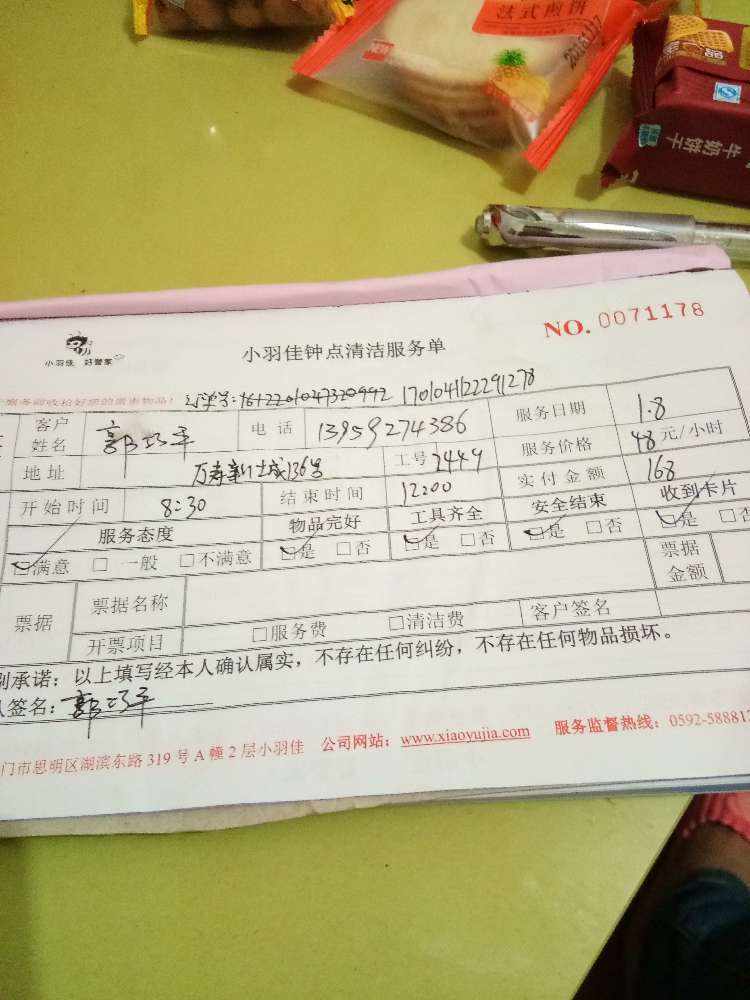 法式煎饼
2016.11.17
牛奶饼干
小羽佳 好管家
小羽佳钟点清洁服务单
NO. 0071178
服务前收拾好您的贵重物品!
订单号: 1612201047320992 170104122291278
客户姓名 郭巧平 电话 13959274386 服务日期 1.8
地址 136号 工号 2449 服务价格 48元/小时
开始时间 8:30 结束时间 12:00 实付金额 168
服务态度 物品完好 工具齐全 安全结束 收到卡片
☑满意 □一般 □不满意 ☑是 □否 ☑是 □否 ☑是 □否 ☑是 □否
票据 票据名称 票据金额
开票项目 □服务费 □清洁费 客户签名
别承诺:以上填写经本人确认属实,不存在任何纠纷,不存在任何物品损坏。
人签名: 郭巧平
门市思明区湖滨东路 319 号 A 幢 2 层小羽佳 公司网站: www.xiaoyujia.com 服务监督热线: 0592-588812